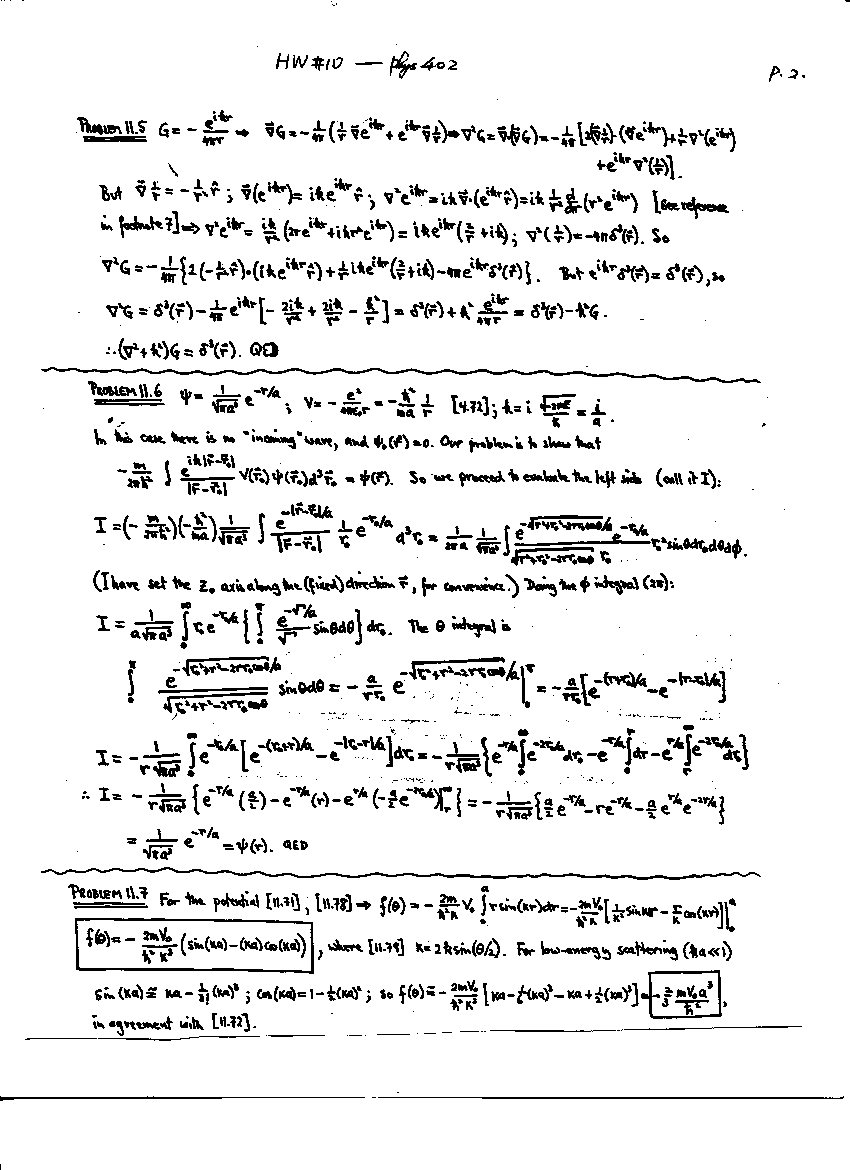 HW#10 — Phys 402
P. 2.
PROBLEM 11.5 G = - e^{ikr}/4πr ⇒ ∇⃗G = -1/4π (1/r ∇⃗e^{ikr} + e^{ikr} ∇⃗ 1/r) ⇒ ∇²G = ∇⃗·(∇⃗G) = -1/4π [2(∇⃗ 1/r)·(∇⃗e^{ikr}) + 1/r ∇²(e^{ikr})
+ e^{ikr} ∇²(1/r)].
But ∇⃗ 1/r = -1/r² r̂ ; ∇⃗(e^{ikr}) = ik e^{ikr} r̂ ; ∇²e^{ikr} = ik ∇⃗·(e^{ikr} r̂) = ik 1/r² d/dr (r² e^{ikr}) [See reference
in footnote 7] ⇒ ∇²e^{ikr} = ik/r² (2re^{ikr} + ikr²e^{ikr}) = ik e^{ikr} (2/r + ik) ; ∇²(1/r) = -4πδ³(r⃗). So
∇²G = -1/4π {2(-1/r² r̂)·(ik e^{ikr} r̂) + 1/r ik e^{ikr} (2/r + ik) - 4π e^{ikr} δ³(r⃗)}. But e^{ikr} δ³(r⃗) = δ³(r⃗), so
∇²G = δ³(r⃗) - 1/4π e^{ikr} [- 2ik/r² + 2ik/r² - k²/r] = δ³(r⃗) + k² e^{ikr}/4πr = δ³(r⃗) - k²G.
∴ (∇² + k²)G = δ³(r⃗). QED
PROBLEM 11.6 ψ = 1/√πa³ e^{-r/a} ; V = - e²/4πε₀r = - ħ²/ma 1/r [4.72] ; k = i √-2mE/ħ = i/a .
In this case there is no "incoming" wave, and ψ₀(r⃗) = 0. Our problem is to show that
- m/2πħ² ∫ e^{ik|r⃗-r⃗₀|}/|r⃗-r⃗₀| V(r⃗₀) ψ(r⃗₀) d³r⃗₀ = ψ(r⃗). So we proceed to evaluate the left side (call it I):
I = (- m/2πħ²)(- ħ²/ma) 1/√πa³ ∫ e^{-|r⃗-r⃗₀|/a}/|r⃗-r⃗₀| 1/r₀ e^{-r₀/a} d³r₀ = 1/2πa 1/√πa³ ∫ e^{-√r²+r₀²-2rr₀cosθ/a} e^{-r₀/a}/√r²+r₀²-2rr₀cosθ r₀ r₀² sinθ dr₀ dθ dφ.
(I have set the z₀ axis along the (fixed) direction r⃗, for convenience.) Doing the φ integral (2π):
I = 1/a√πa³ ∫₀^∞ r₀ e^{-r₀/a} {∫₀^π e^{-√ /a}/√ sinθ dθ} dr₀. The θ integral is
∫₀^π e^{-√r₀²+r²-2rr₀cosθ/a}/√r₀²+r²-2rr₀cosθ sinθ dθ = - a/rr₀ e^{-√r₀²+r²-2rr₀cosθ/a} |₀^π = - a/rr₀ [e^{-(r+r₀)/a} - e^{-|r-r₀|/a}]
I = - 1/r√πa³ ∫₀^∞ e^{-r₀/a} [e^{-(r₀+r)/a} - e^{-|r₀-r|/a}] dr₀ = - 1/r√πa³ {e^{-r/a} ∫₀^∞ e^{-2r₀/a} dr₀ - e^{-r/a} ∫₀^r dr - e^{r/a} ∫_r^∞ e^{-2r₀/a} dr₀}
∴ I = - 1/r√πa³ {e^{-r/a} (a/2) - e^{-r/a} (r) - e^{r/a} (-a/2 e^{-2r₀/a})|_r^∞} = - 1/r√πa³ {a/2 e^{-r/a} - re^{-r/a} - a/2 e^{r/a} e^{-2r/a}}
= 1/√πa³ e^{-r/a} = ψ(r). QED
PROBLEM 11.7 For the potential [11.71], [11.78] ⇒ f(θ) = - 2m/ħ²κ V₀ ∫₀^a r sin(κr) dr = - 2mV₀/ħ²κ [1/κ² sin κr - r/κ cos(κr)]|₀^a
f(θ) = - 2mV₀/ħ²κ³ (sin(κa) - (κa)cos(κa)) , where [11.79] κ = 2k sin(θ/2). For low-energy scattering (ka≪1)
sin(κa) ≅ κa - 1/3! (κa)³ ; cos(κa) = 1 - ½(κa)² ; so f(θ) ≅ - 2mV₀/ħ²κ³ [κa - 1/6 (κa)³ - κa + ½(κa)³] = - 2/3 mV₀a³/ħ² ,
in agreement with [11.72].